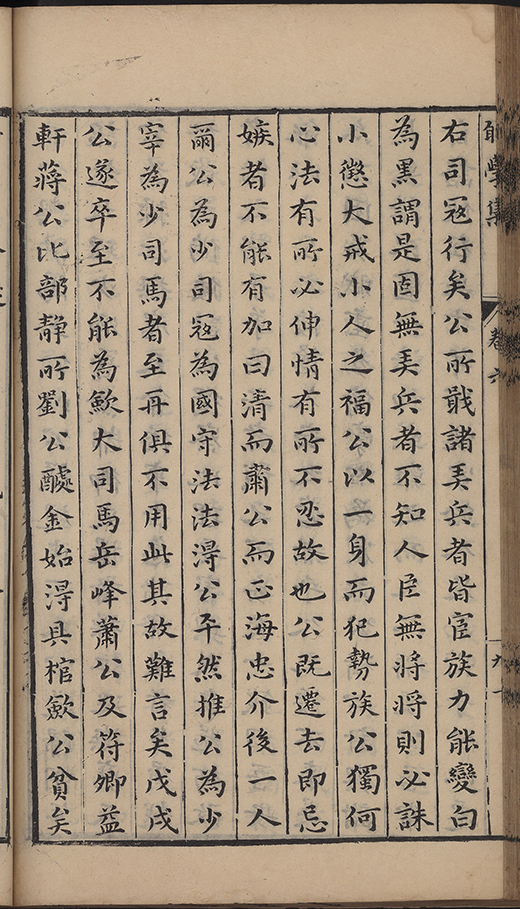 學集 卷六
右司寇行矣公所戢諸美兵者皆宦族力能變白
為黑謂是固無美兵者不知人臣無將將則必誅
小懲大戒小人之福公以一身而犯勢族公獨何
心法有所必伸情有所不忍故也公既遷去即忌
嫉者不能有加曰清而肅公而正海忠介後一人
爾公為少司寇為國守法法得公平然推公為少
宰為少司馬者至再俱不用此其故難言矣戊戌
公遂卒至不能為歛大司馬岳峰蕭公及符卿益
軒蔣公比部靜所劉公醵金始得具棺歛公貧矣